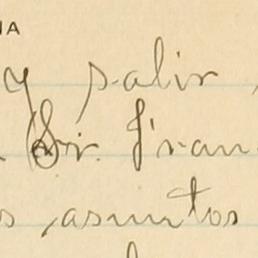 IA
y salir
Sr. Fran
s asuntos